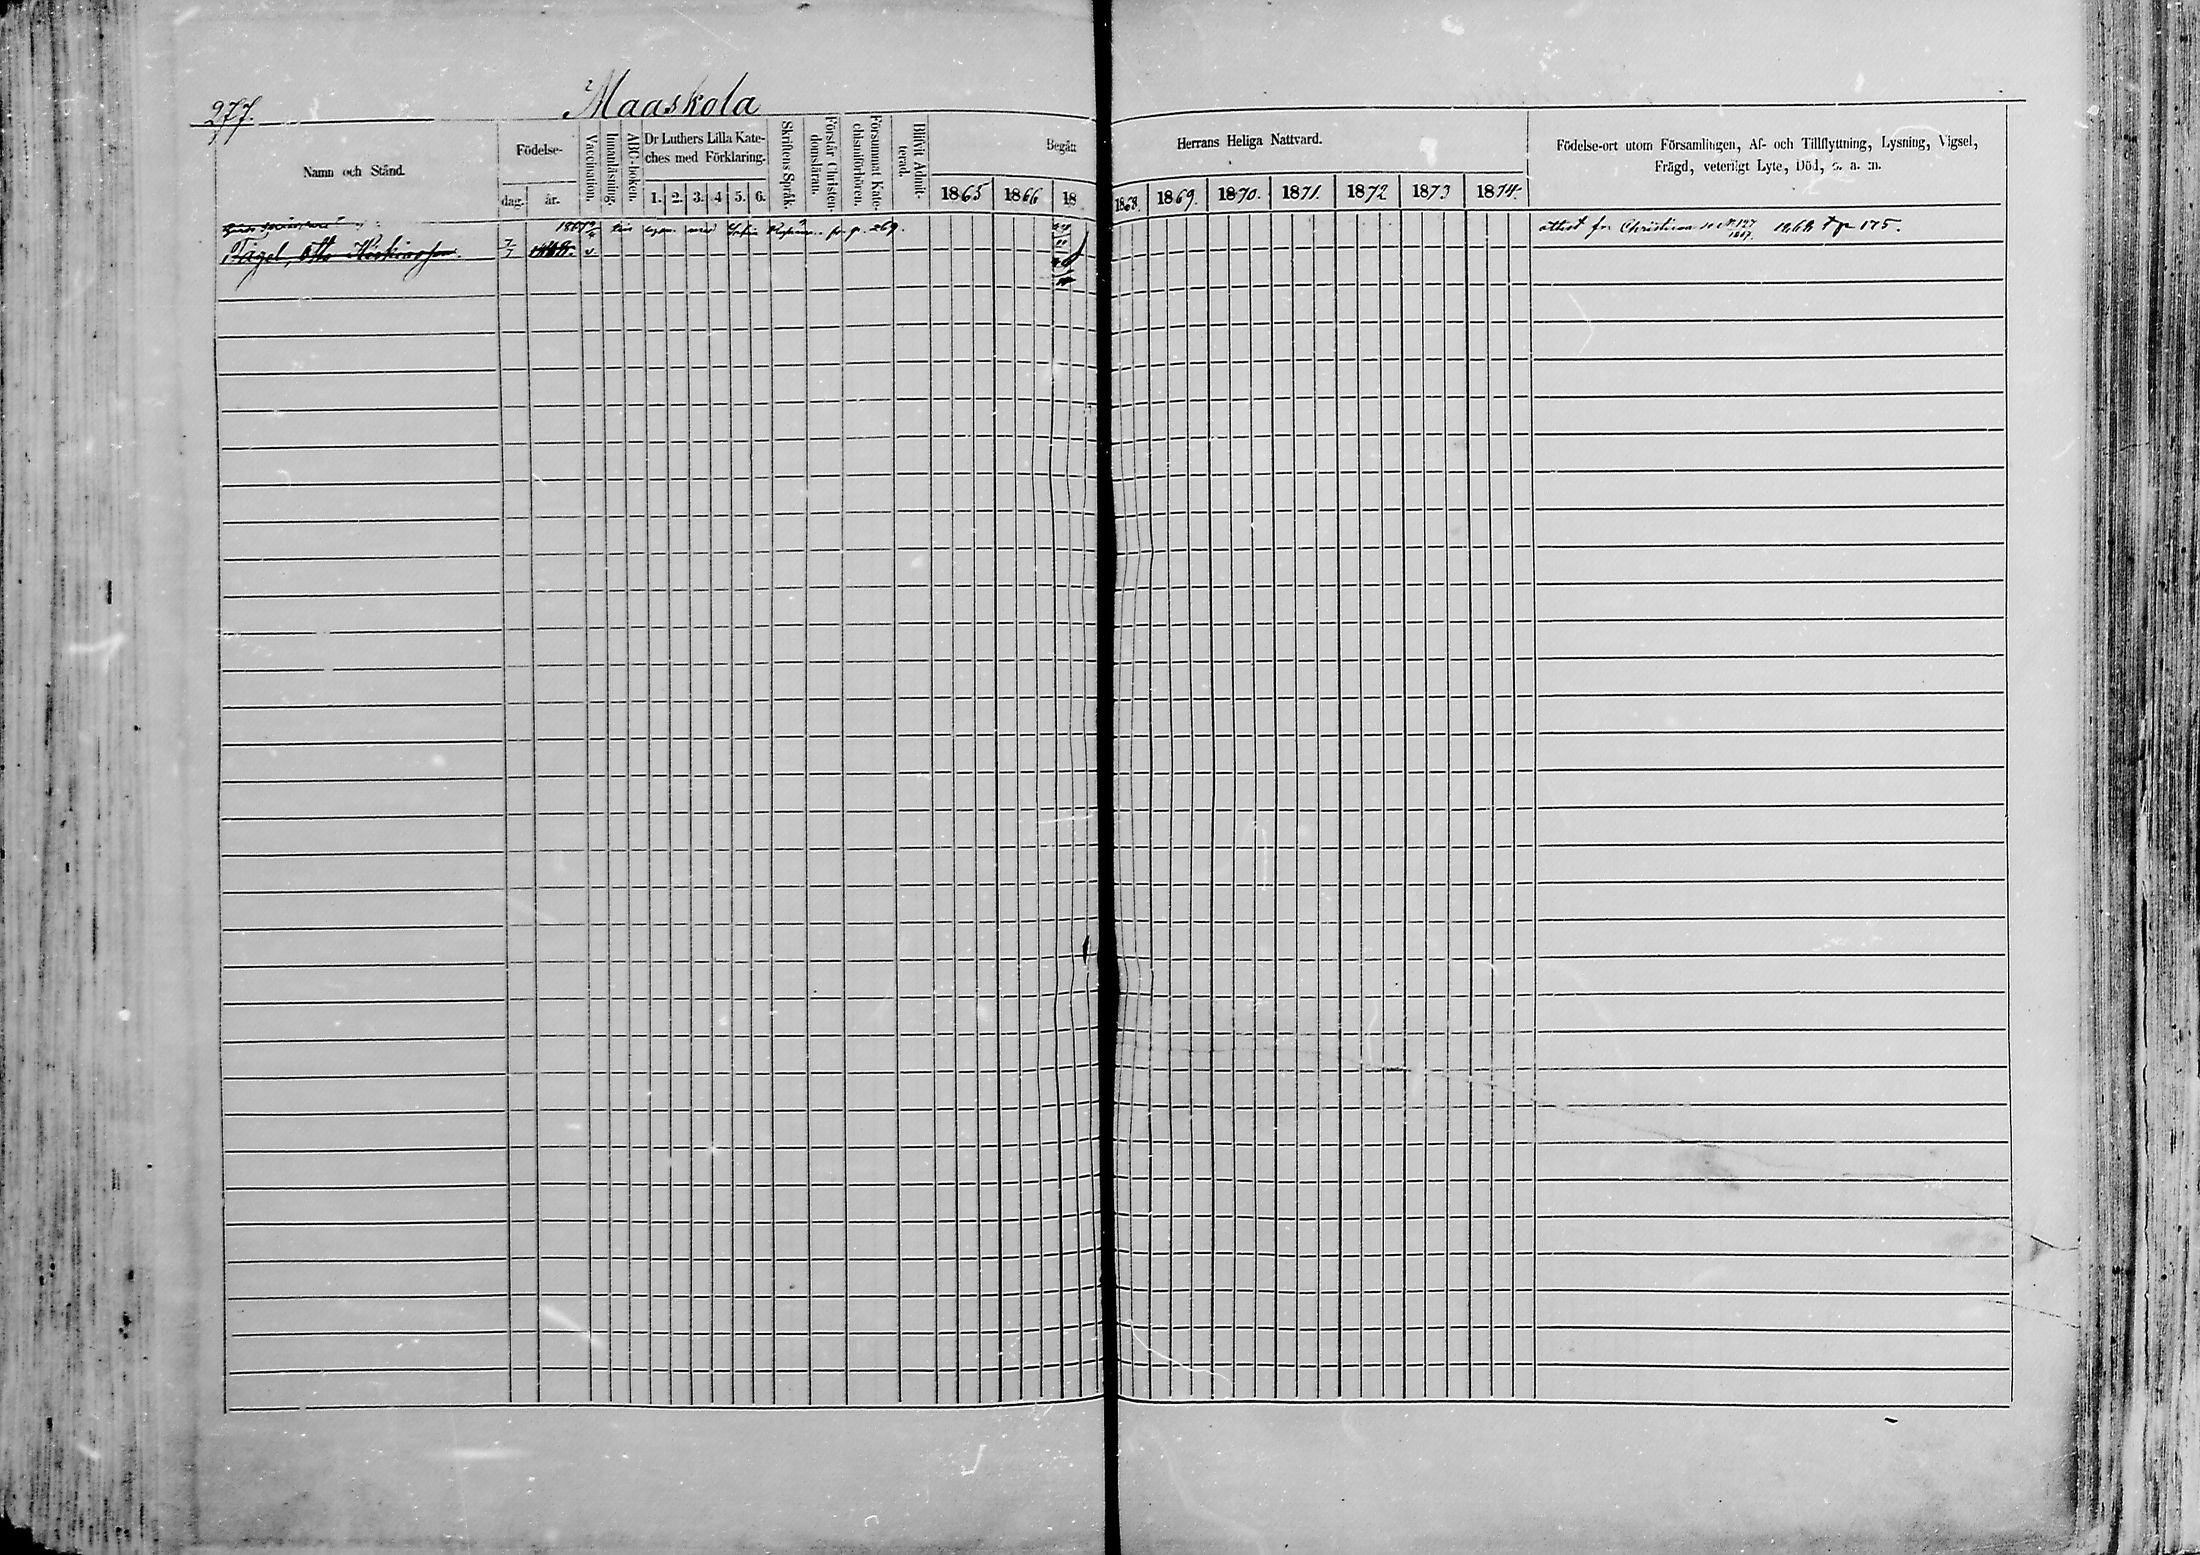 277.
Maaskola
Namn och Stånd.
Födelse-
dag.
år.
Vaccination.
Innanläsning.
ABC-boken.
Dr Luthers Lilla Kate-
ches med Förklaring.
1. 2. 3. 4 5. 6.
Skriftens Språk.
Förstår Christen-
domsläran.
Försummat Kate-
chismiförhören.
Blifvit Admit-
terad.
Begått
1865 1866 18
Herrans Heliga Nattvard.
1868. 1869. 1870. 1871. 1872 1873 1874.
Födelse-ort utom Församlingen, Af- och Tillflyttning, Lysning, Vigsel,
Frägd, veterligt Lyte, Död, o. a. m.
p. 269.
attest fr Christina 1868 p 175.
Tigel, Otto 7/7 v.